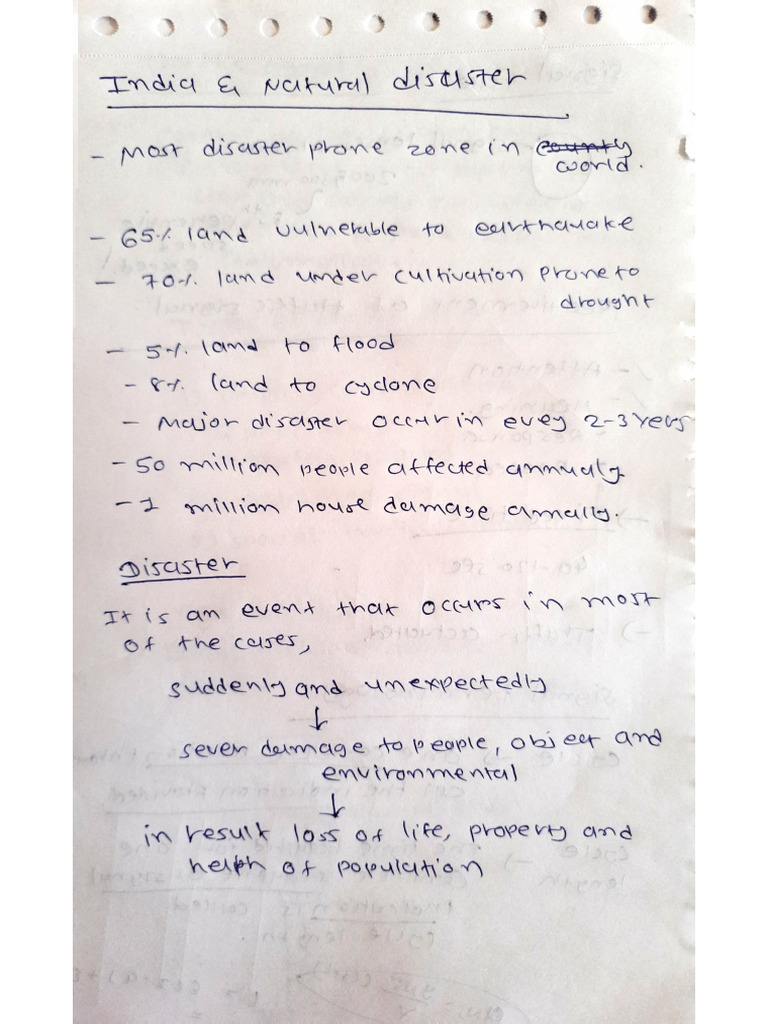 India & Natural disaster
- Most disaster prone zone in county
world.
- 65% land vulnerable to earthquake
- 70% land under cultivation prone to
drought
- 5% land to flood
- 8% land to cyclone
- Major disaster occur in evey 2-3 Yers
- 50 million people affected annualy.
- 1 million house damage anually.
Disaster
It is an event that occurs in most
of the cases,
suddenly and unexpectedly
↓
sever damage to people, object and
environmental
↓
in result loss of life, property and
helth of population